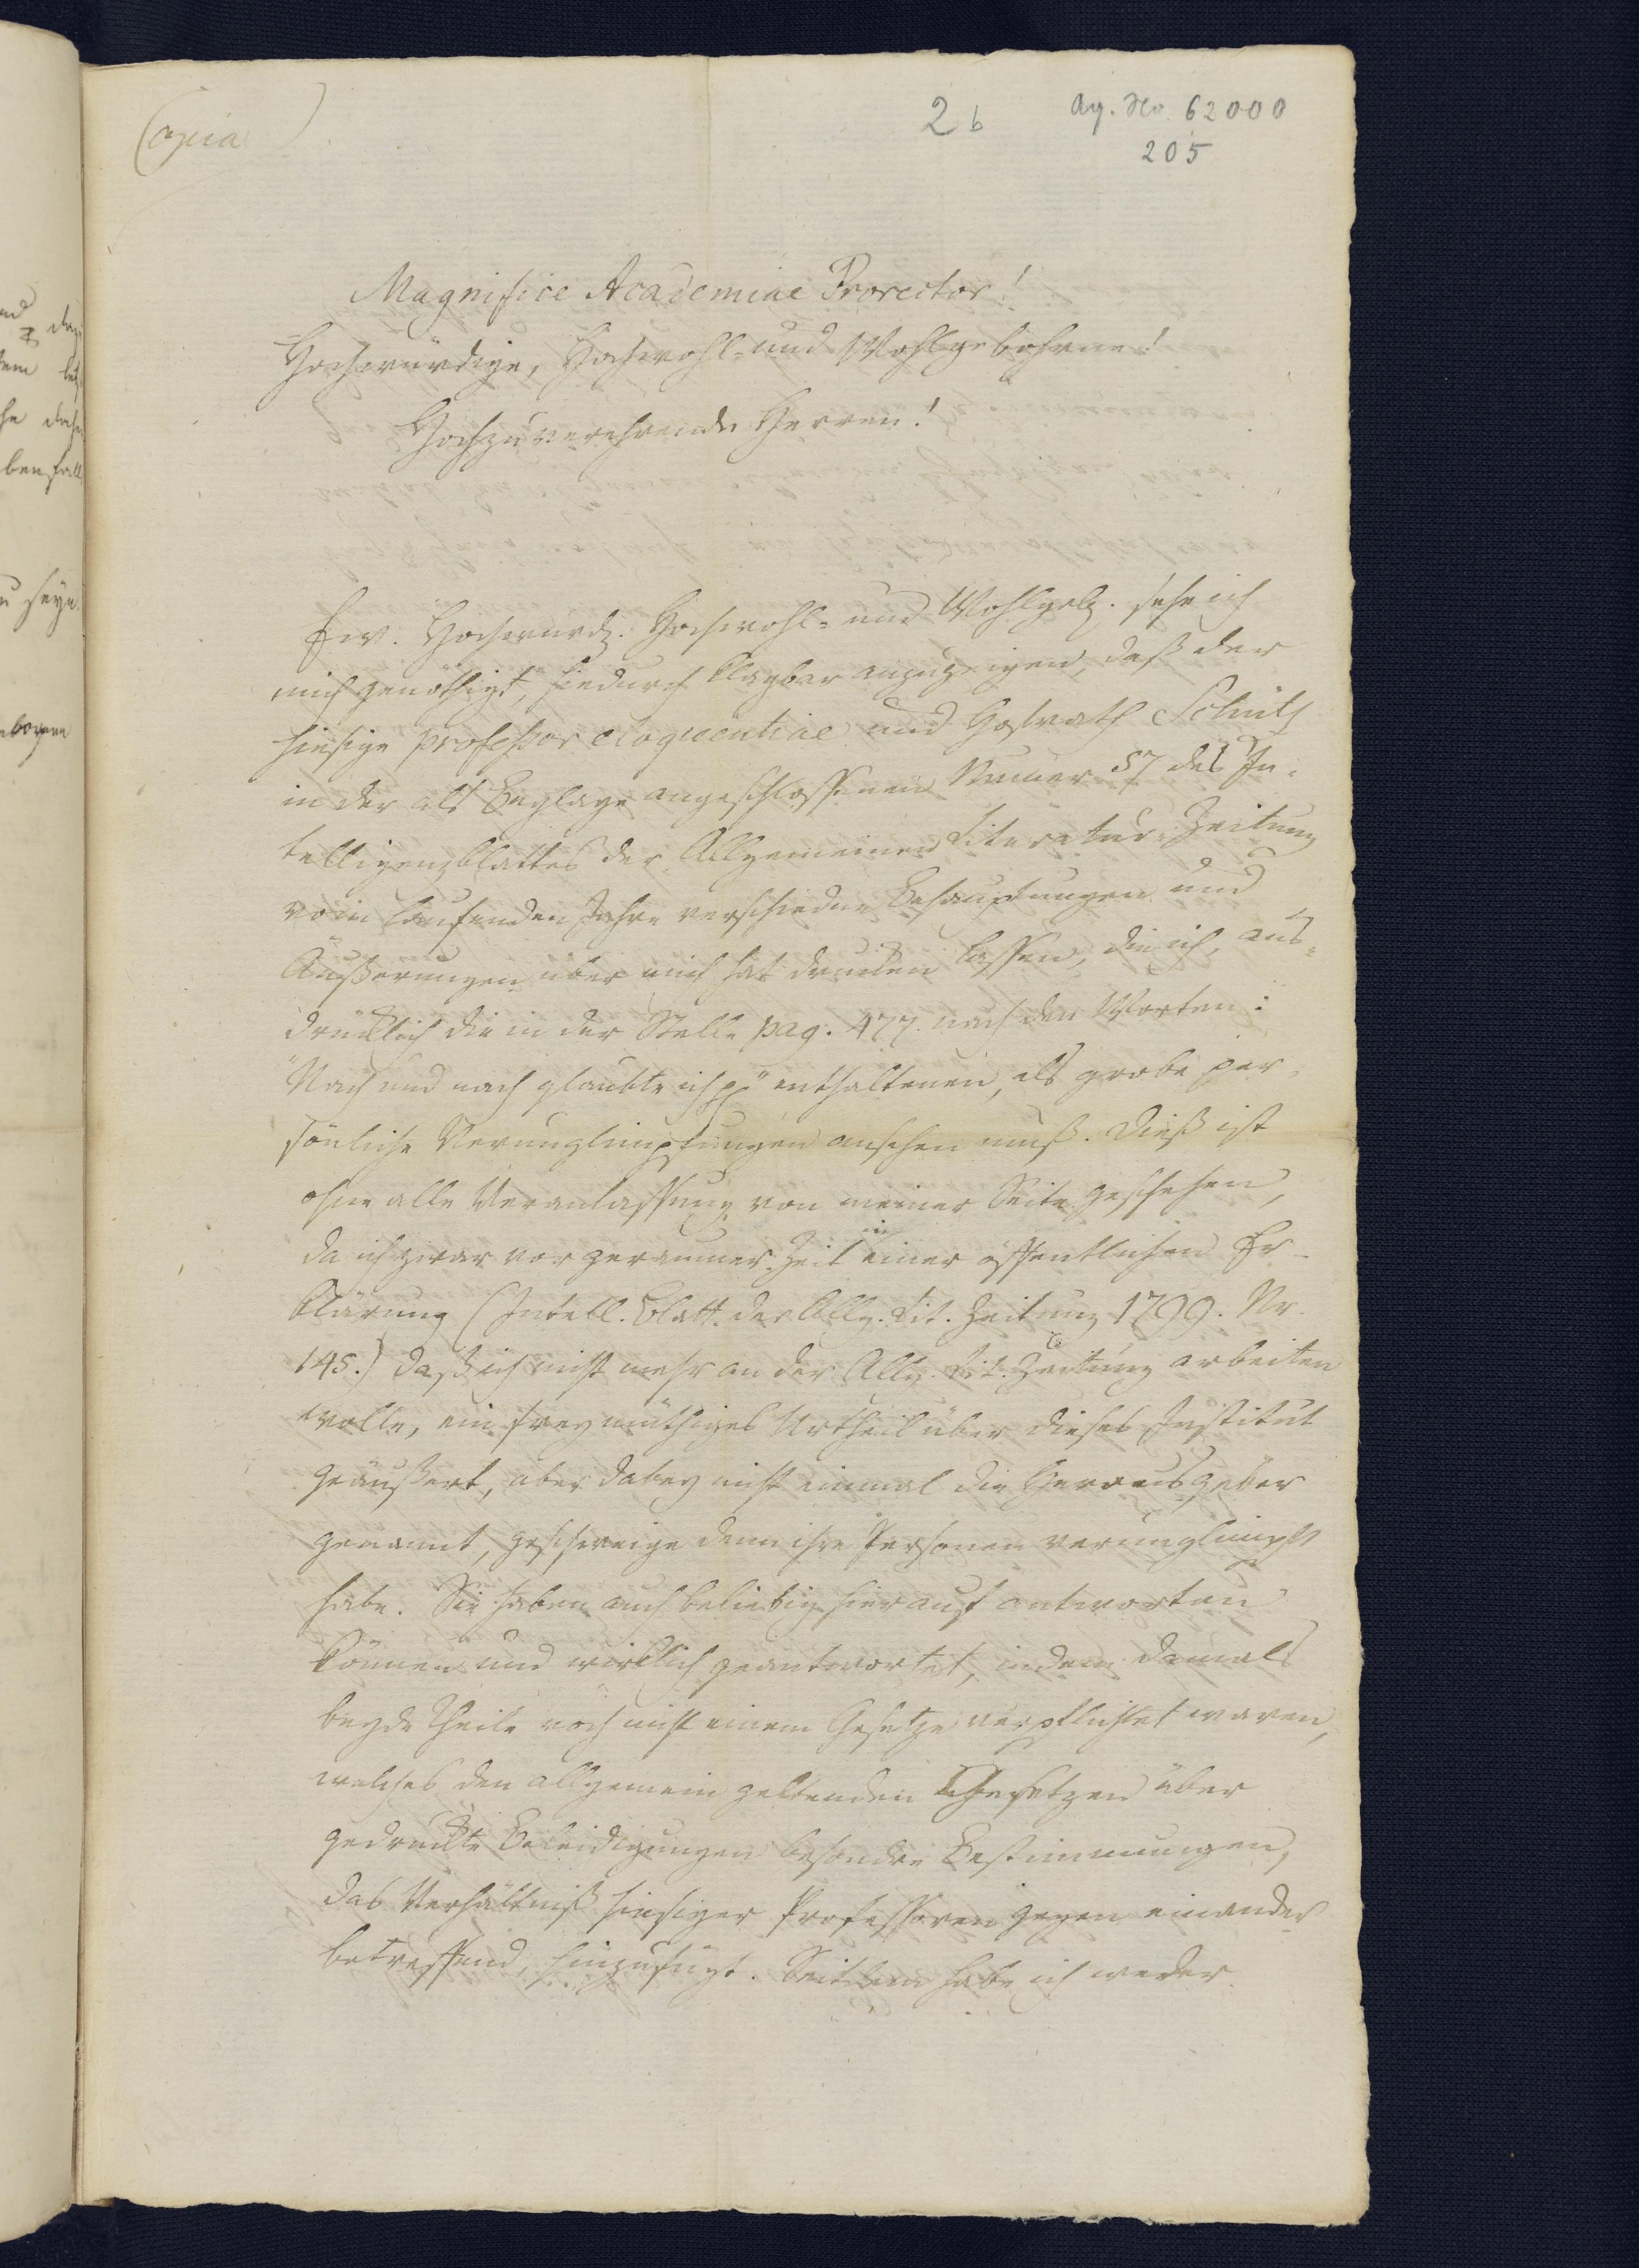 Copia
2 b
Ag. No. 62000
205
Magnifice Academiae Prorector!
Hochwürdige, Hochwohl- und Wohlgebohrne!
Hochzuverehrende Herren!
Ew. Hochwürd. Hochwohl- und Wohlgeb. sehe ich
mich genöthigt, hiedurch klagbar anzuzeigen, daß der
hiesige professor eloquentiae und Hofrath Schütz
in der als Beylage angeschlossenen Numer 57 des In-
telligenzblattes der Allgemeinen Literatur-Zeitung
vom laufenden Jahre verschiedne Behauptungen und
Äußerungen über mich hat drucken lassen, die ich, aus-
drücklich die in der Stelle pag. 477. nach den Worten:
"Nach und nach glaubte ich pp" enthaltenen, als grobe per-
sönliche Verunglimpfungen ansehen muß. Dieß ist
ohne alle Veranlassung von meiner Seite geschehen,
da ich zwar vor geraumer Zeit in einer öffentlichen Er-
klärung (Intell. Blatt. der Allg. Lit. Zeitung 1799. Nr.
145.) daß ich nicht mehr an der Allg. Lit. Zeitung arbeiten
wolle, ein freymüthiges Urtheil über dieses Institut
geäußert, aber dabey nicht einmal die Herausgeber
genannt, geschweige denn ihre Personen verunglimpft
habe. Sie haben auch beliebig hierauf antworten
können und wirklich geantwortet, indem damals
beyde Theile noch nicht einem Gesetze verpflichtet waren,
welches den allgemein geltenden Gesetzen über
gedruckte Beleidigungen besondre Bestimmungen,
das Verhältniß hiesiger Professoren gegen einander
betreffend, hinzufügt. Seitdem habe ich weder